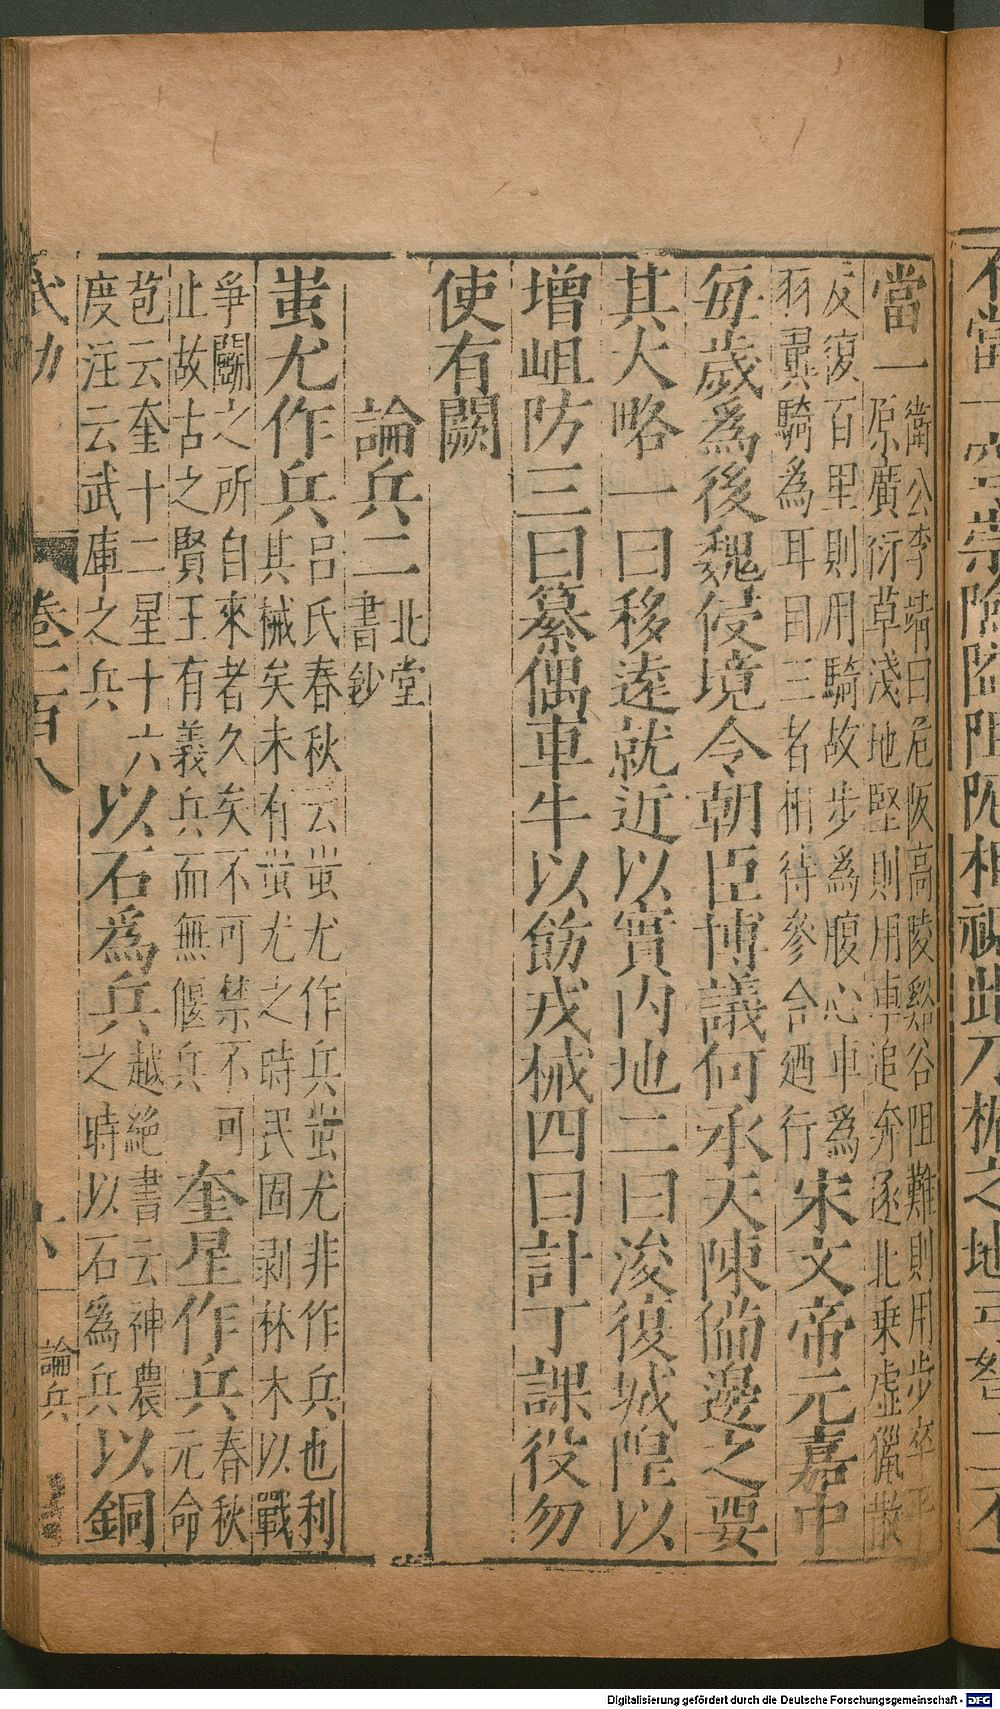 當一衞公李靖曰危阪高陵谿谷阻難則用步卒平
原廣衍草淺地堅則用車追奔逐北乗虛獵散
反復百里則用騎故步爲腹心車爲
羽翼騎為耳目三者相待參合迺行宋文帝元嘉中
每歲爲後魏侵境令朝臣博議何承天陳備邊之要
其大略一曰移遠就近以實内地二曰浚復城隍以
增岨防三曰纂偶車牛以飭戎械四曰計丁課役勿
使有闕
論兵二北堂
書鈔
蚩尤作兵呂氏春秋云蚩尤作兵蚩尤非作兵也利
其械矣未有蚩尤之時民固剥林木以戰
爭鬭之所自來者久矣不可禁不可
止故古之賢王有義兵而無偃兵奎星作兵春秋
元命
苞云奎十二星十六
度注云武庫之兵以石爲兵越絶書云神農
之時以石爲兵以銅
卷一百八
論兵
Digitalisierung gefördert durch die Deutsche Forschungsgemeinschaft - DFG